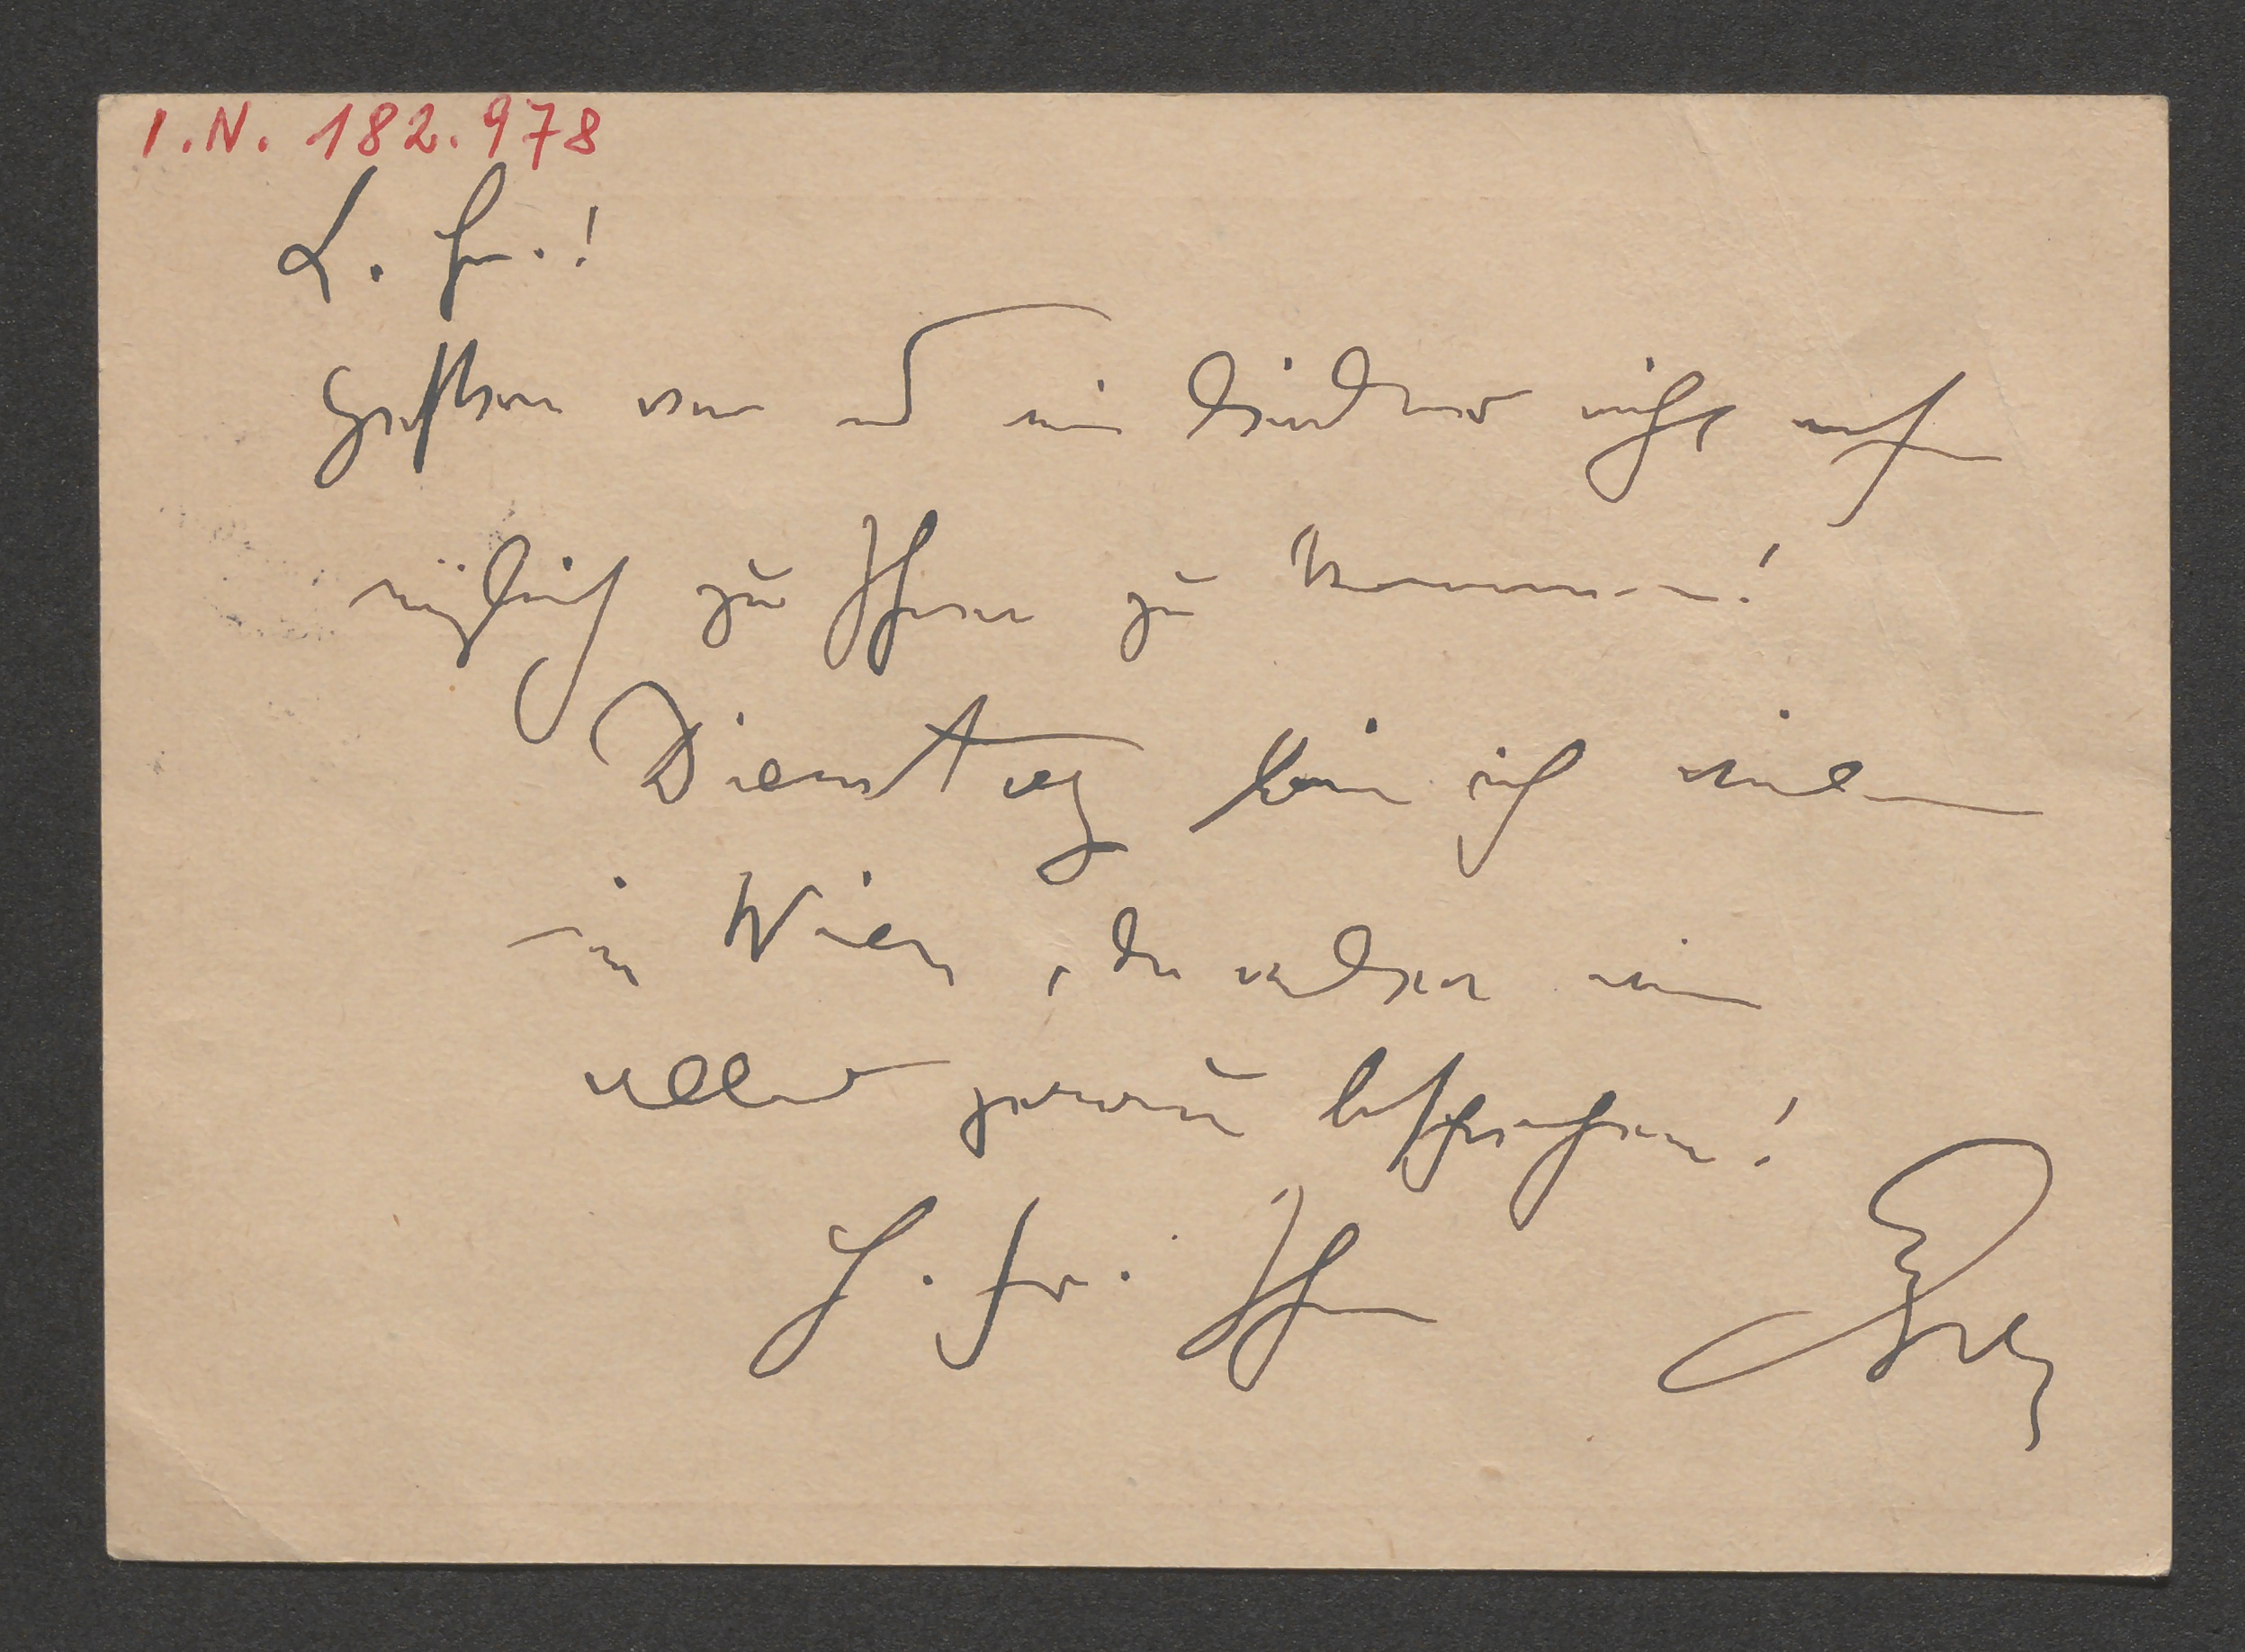 I.N. 182.978
L. Fr.!
Gestern war es mir leider nicht mehr
möglich zu Ihnen zu kommen!
Dienstag bin ich aber
in Wien, da werden wir
alles genau besprechen!
H. Gr. Ihr